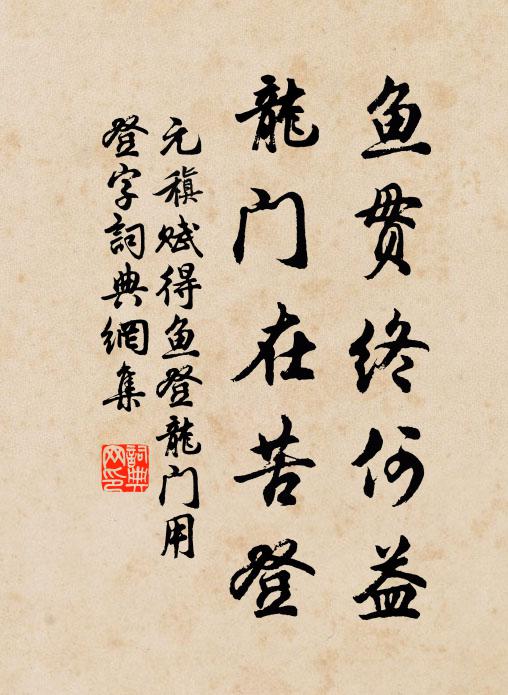 鱼贯终何益
龍门在苦登
元稹赋得鱼登龍门用
登字詞典網集
詞典
网印